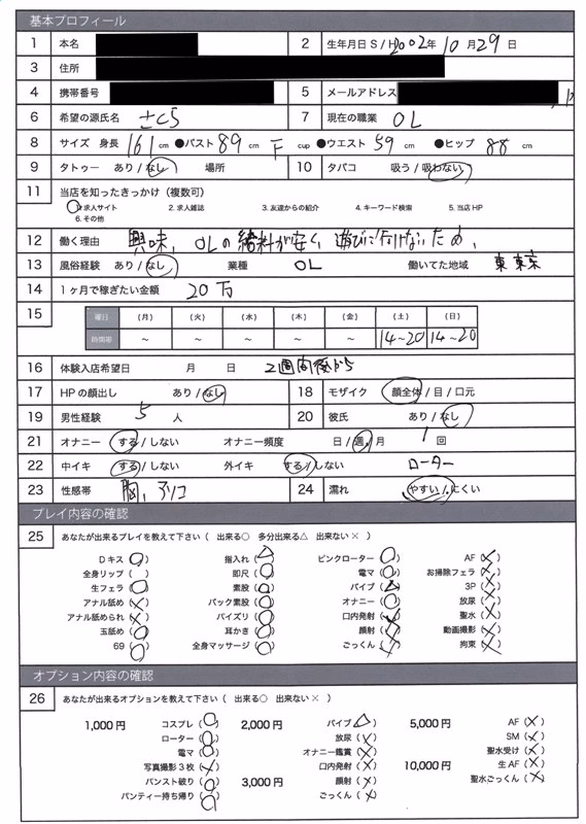 基本プロフィール
1 本名 2 生年月日 S / H 2002年 10月 29日
3 住所
4 携帯番号 5 メールアドレス
6 希望の源氏名 さくら 7 現在の職業 OL
8 サイズ 身長 161 cm ●バスト 89 cm F cup ●ウエスト 59 cm ●ヒップ 88 cm
9 タトゥー あり / なし 場所 10 タバコ 吸う / 吸わない
11 当店を知ったきっかけ（複数可）
1. 求人サイト 2. 求人雑誌 3. 友達からの紹介 4. キーワード検索 5. 当店 HP
6. その他
12 働く理由 興味、OLの給料が安く、遊びに行けないため、
13 風俗経験 あり / なし 業種 OL 働いてた地域 東京
14 1ヶ月で稼ぎたい金額 20万
15 曜日 (月) (火) (水) (木) (金) (土) (日)
時間帯 ～ ～ ～ ～ ～ 14～20 14～20
16 体験入店希望日 月 日 2週間後から
17 HPの顔出し あり / なし 18 モザイク 顔全体 / 目 / 口元
19 男性経験 5 人 20 彼氏 あり / なし
21 オナニー する / しない オナニー頻度 日 / 週 / 月 1 回
22 中イキ する / しない 外イキ する / しない ローター
23 性感帯 胸、クリ 24 濡れ やすい / にくい
プレイ内容の確認
25 あなたが出来るプレイを教えて下さい（ 出来る○ 多分出来る△ 出来ない× ）
Dキス (○) 指入れ (△) ピンクローター (○) AF (×)
全身リップ ( ) 即尺 (○) 電マ (○) お掃除フェラ (×)
生フェラ (○) 素股 (○) バイブ (△) 3P (×)
アナル舐め (×) バック素股 (○) オナニー (○) 放尿 (×)
アナル舐められ (×) パイズリ (○) 口内発射 (×) 聖水 (×)
玉舐め (○) 耳かき (○) 顔射 (×) 動画撮影 (×)
69 (○) 全身マッサージ (○) ごっくん (×) 拘束 (×)
オプション内容の確認
26 あなたが出来るオプションを教えて下さい（ 出来る○ 出来ない× ）
1,000円 コスプレ (○) 2,000円 バイブ (△) 5,000円 AF (×)
ローター (○) 放尿 (×) SM (×)
電マ (○) オナニー鑑賞 (×) 聖水受け (×)
写真撮影3枚 (×) 口内発射 (×) 10,000円 生AF (×)
パンスト破り (○) 3,000円 顔射 (×) 聖水ごっくん (×)
パンティー持ち帰り (○) ごっくん (×)